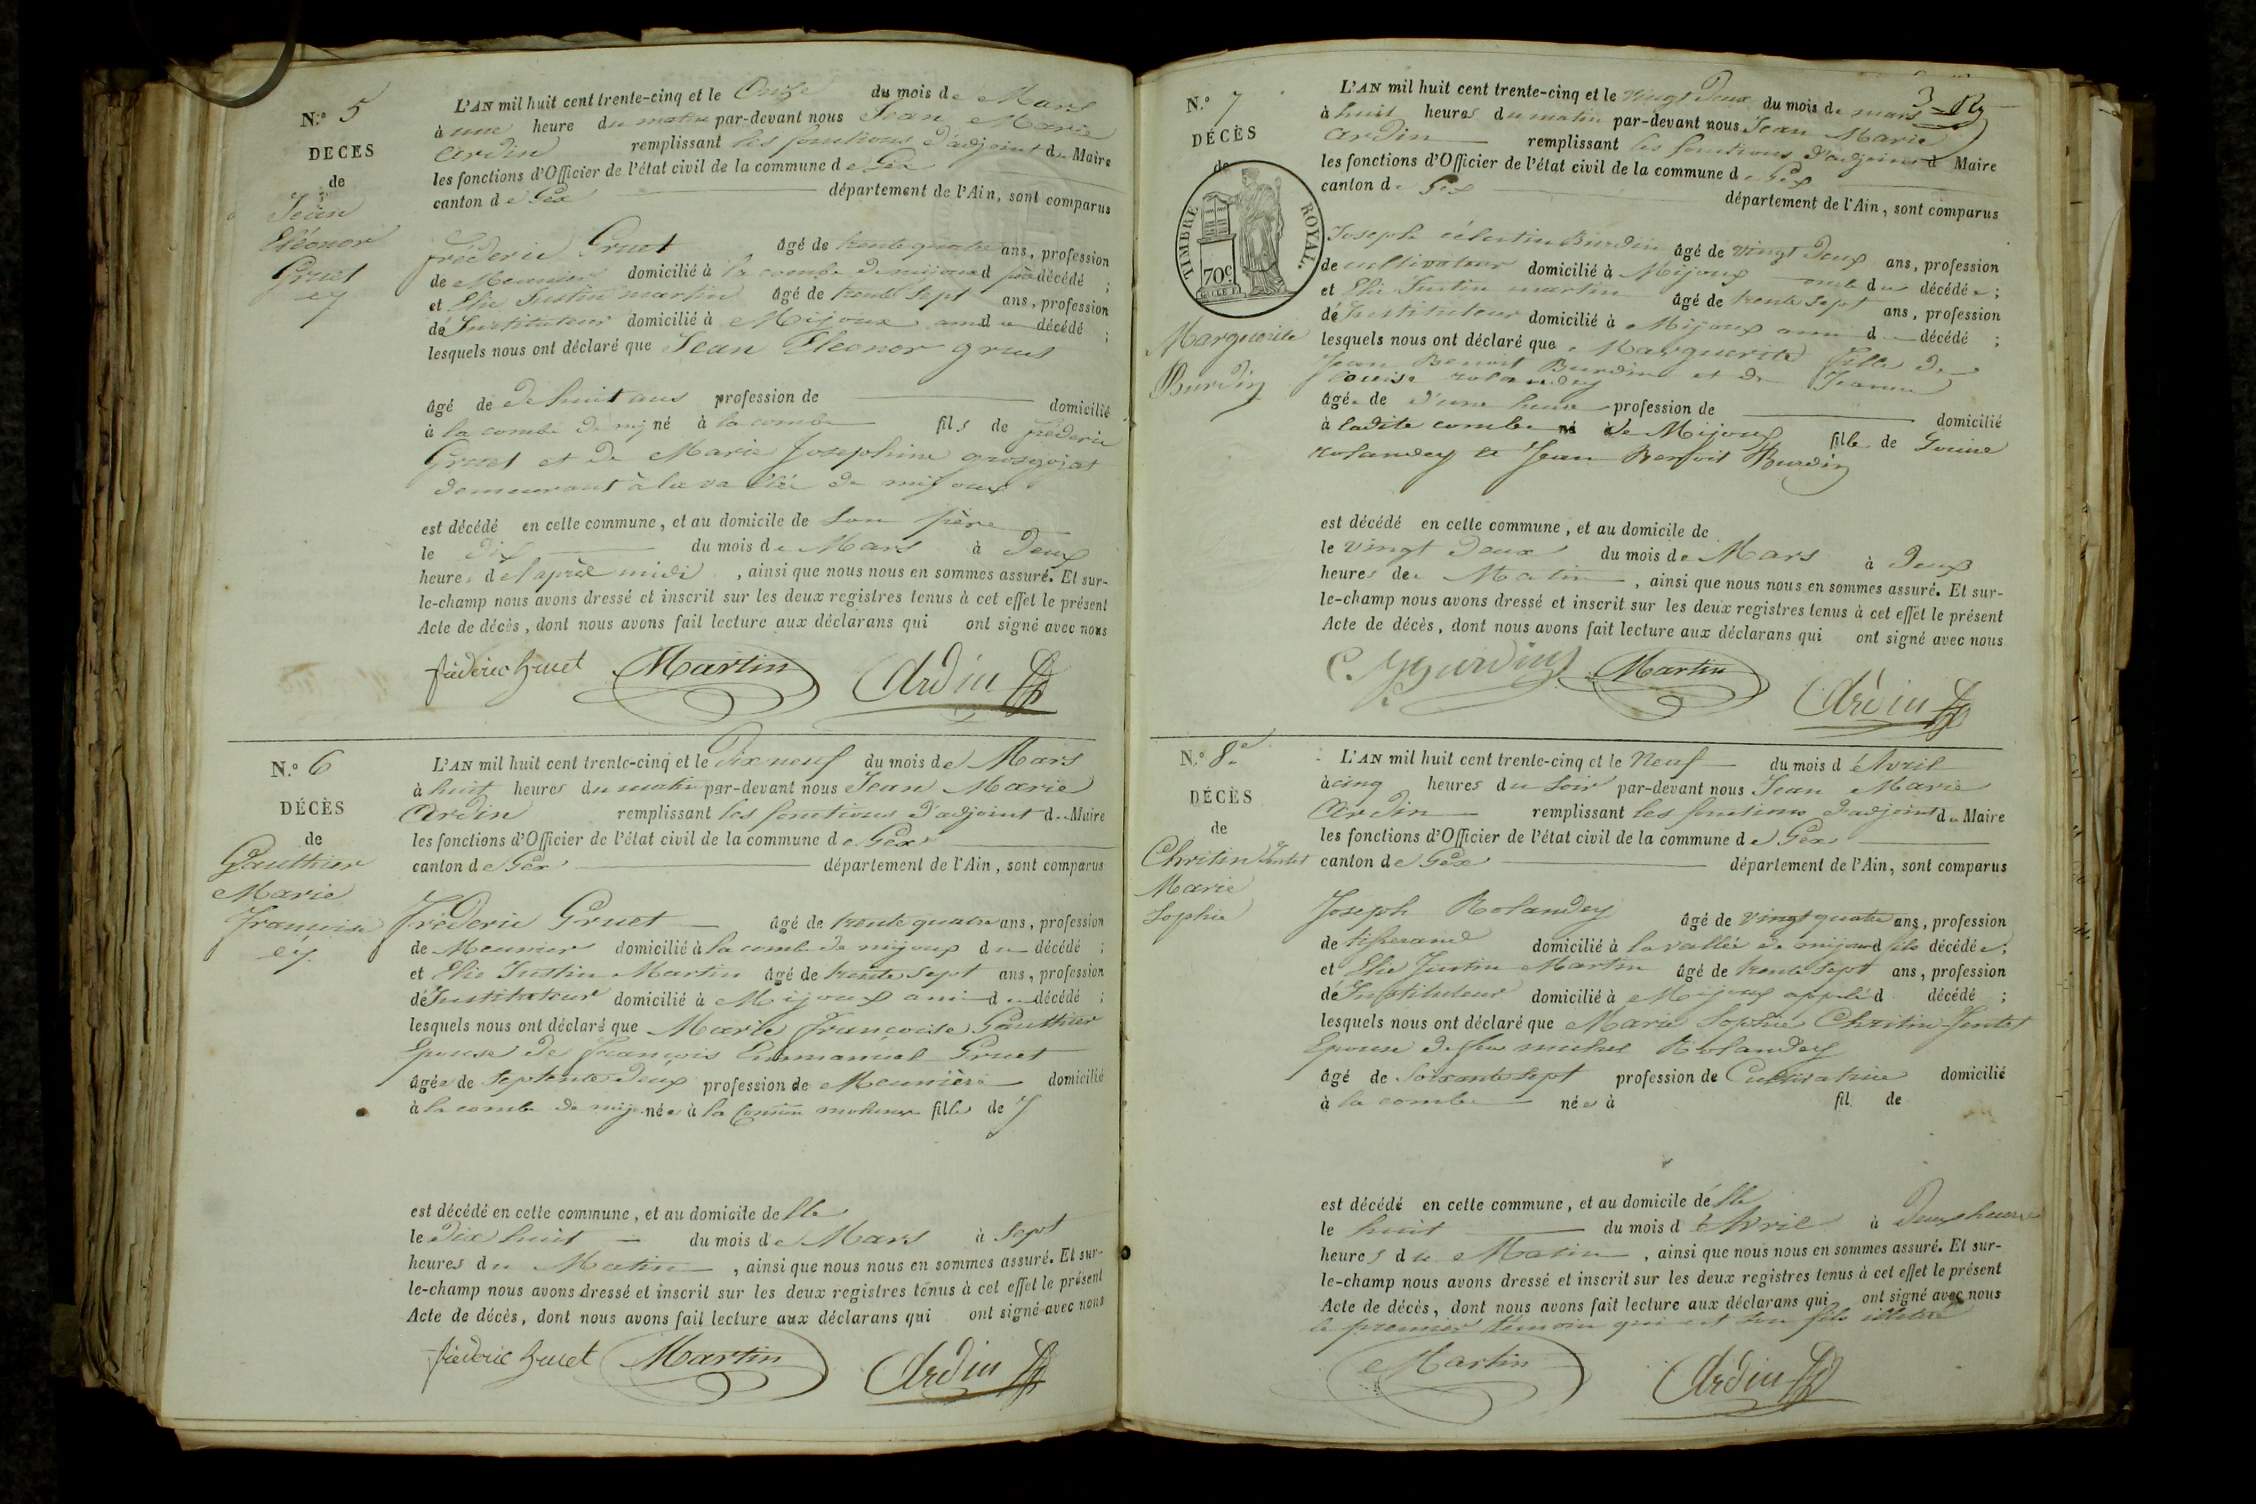 N.º 5
DÉCÈS
de
Jean
Eléonor
Gruet
L'AN mil huit cent trente-cinq et le Onze du mois de Mars
à une heure du matin par-devant nous Jean Marie
Ardin remplissant les fonctions d'adjoint du Maire
les fonctions d'Officier de l'état civil de la commune de Gex
canton de Gex département de l'Ain, sont comparus
fréderic Gruet âgé de trente quatre ans, profession
de Meunier domicilié à la combe de mijoux d père décédé ;
et Elie Justin martin âgé de trente sept ans, profession
dé Instituteur domicilié à Mijoux ami du décédé ;
lesquels nous ont déclaré que Jean Eleonor gruet
âgé de de huit ans profession de domicilié
à la combe de mij né à la combe fils de fréderic
Gruet et de Marie Josephine grosgojat
demeurant à la vallée de mijoux
est décédé en cette commune, et au domicile de son père
le dix du mois de Mars à deux
heures de l'après midi, ainsi que nous nous en sommes assuré. Et sur-
le-champ nous avons dressé et inscrit sur les deux registres tenus à cet effet le présent
Acte de décès, dont nous avons fait lecture aux déclarans qui ont signé avec nous
fréderic gruet Martin Ardin
N.º 6
DÉCÈS
de
Gauthier
Marie
Françoise
L'AN mil huit cent trente-cinq et le Dix neuf du mois de Mars
à huit heures du matin par-devant nous Jean Marie
Ardin remplissant les fonctions d'adjoint du Maire
les fonctions d'Officier de l'état civil de la commune de Gex
canton de Gex département de l'Ain, sont comparus
Fréderic Gruet âgé de trente quatre ans, profession
de Meunier domicilié à la combe de mijoux du décédé ;
et Elie Justin Martin âgé de trente sept ans, profession
dé Instituteur domicilié à Mijoux ami du décédé ;
lesquels nous ont déclaré que Marie françoise Gauthier
Epouse de françois Emmanuel Gruet
âgée de septente deux profession de Meunière domicilié
à la combe de mij née à la fille de
est décédé en cette commune, et au domicile de Elle
le Dix huit du mois de Mars à Sept
heures du Matin, ainsi que nous nous en sommes assuré. Et sur-
le-champ nous avons dressé et inscrit sur les deux registres tenus à cet effet le présent
Acte de décès, dont nous avons fait lecture aux déclarans qui ont signé avec nous
fréderic gruet Martin Ardin
N.º 7
DÉCÈS
de
TIMBRE ROYAL.
70c
Marguerite
Burdin
L'AN mil huit cent trente-cinq et le vingt Deux du mois de mars
à huit heures du matin par-devant nous Jean Marie
Ardin remplissant les fonctions d'adjoint d Maire
les fonctions d'Officier de l'état civil de la commune de Gex
canton de Gex département de l'Ain, sont comparus
Joseph célestin Burdin âgé de vingt deux ans, profession
de cultivateur domicilié à Mijoux oncle du décédée ;
et Elie Justin martin âgé de trente sept ans, profession
dé Instituteur domicilié à Mijoux ami d décédé ;
lesquels nous ont déclaré que Marguerite fille de
Jean Benoit Burdin et de Jeanne
Louise rolandey
âgée de d'une heure profession de domicilié
à ladite combe né de Mijoux fille de Louise
rolandey et Jean Benoit Burdin
est décédé en cette commune, et au domicile de
le vingt deux du mois de Mars à deux
heures de Matin, ainsi que nous nous en sommes assuré. Et sur-
le-champ nous avons dressé et inscrit sur les deux registres tenus à cet effet le présent
Acte de décès, dont nous avons fait lecture aux déclarans qui ont signé avec nous
C. J. Burdin Martin Ardin
N.º 8
DÉCÈS
de
Chritin Jentet
Marie
Sophie
L'AN mil huit cent trente-cinq et le Neuf du mois d'Avril
à cinq heures du soir par-devant nous Jean Marie
Ardin remplissant les fonctions d'adjoint du Maire
les fonctions d'Officier de l'état civil de la commune de Gex
canton de Gex département de l'Ain, sont comparus
Joseph Rolandey âgé de vingt quatre ans, profession
de tisserand domicilié à la vallée de mijoux d fils décédée ;
et Elie Justin Martin âgé de trente sept ans, profession
dé Instituteur domicilié à Mijoux d décédé ;
lesquels nous ont déclaré que Marie Sophie Chritin Jentet
Epouse de feu michel Rolandey
âgé de Soixante sept profession de Cultivatrice domicilié
à la combe née à fil de
est décédé en cette commune, et au domicile dé Elle
le huit du mois d'Avril à deux heures
heures du Matin, ainsi que nous nous en sommes assuré. Et sur-
le-champ nous avons dressé et inscrit sur les deux registres tenus à cet effet le présent
Acte de décès, dont nous avons fait lecture aux déclarans qui ont signé avec nous
le premier témoin qui est son fils illitéré
Martin Ardin